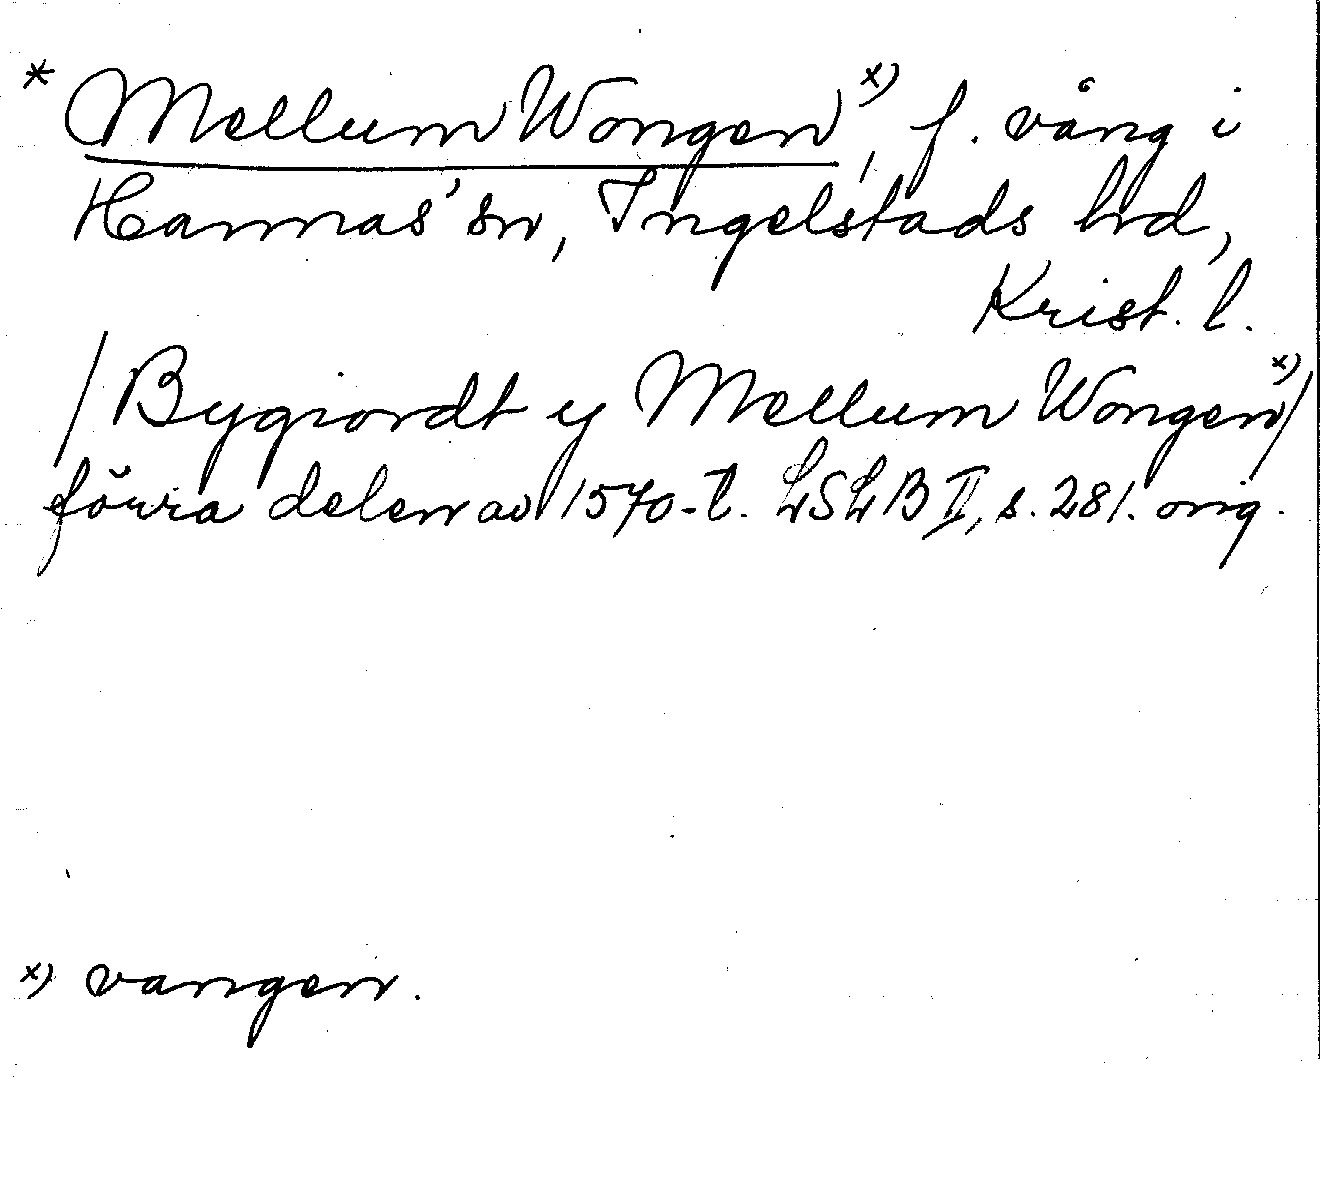 * Mellum Wongen x), f. vång i
Hannas' sn, Ingelstads hd,
Krist. l.
/Bygiordt y Mellum Wongen x)/
förra delen av 1570-t. LSLB II, s. 281. orig.
x) vangen.